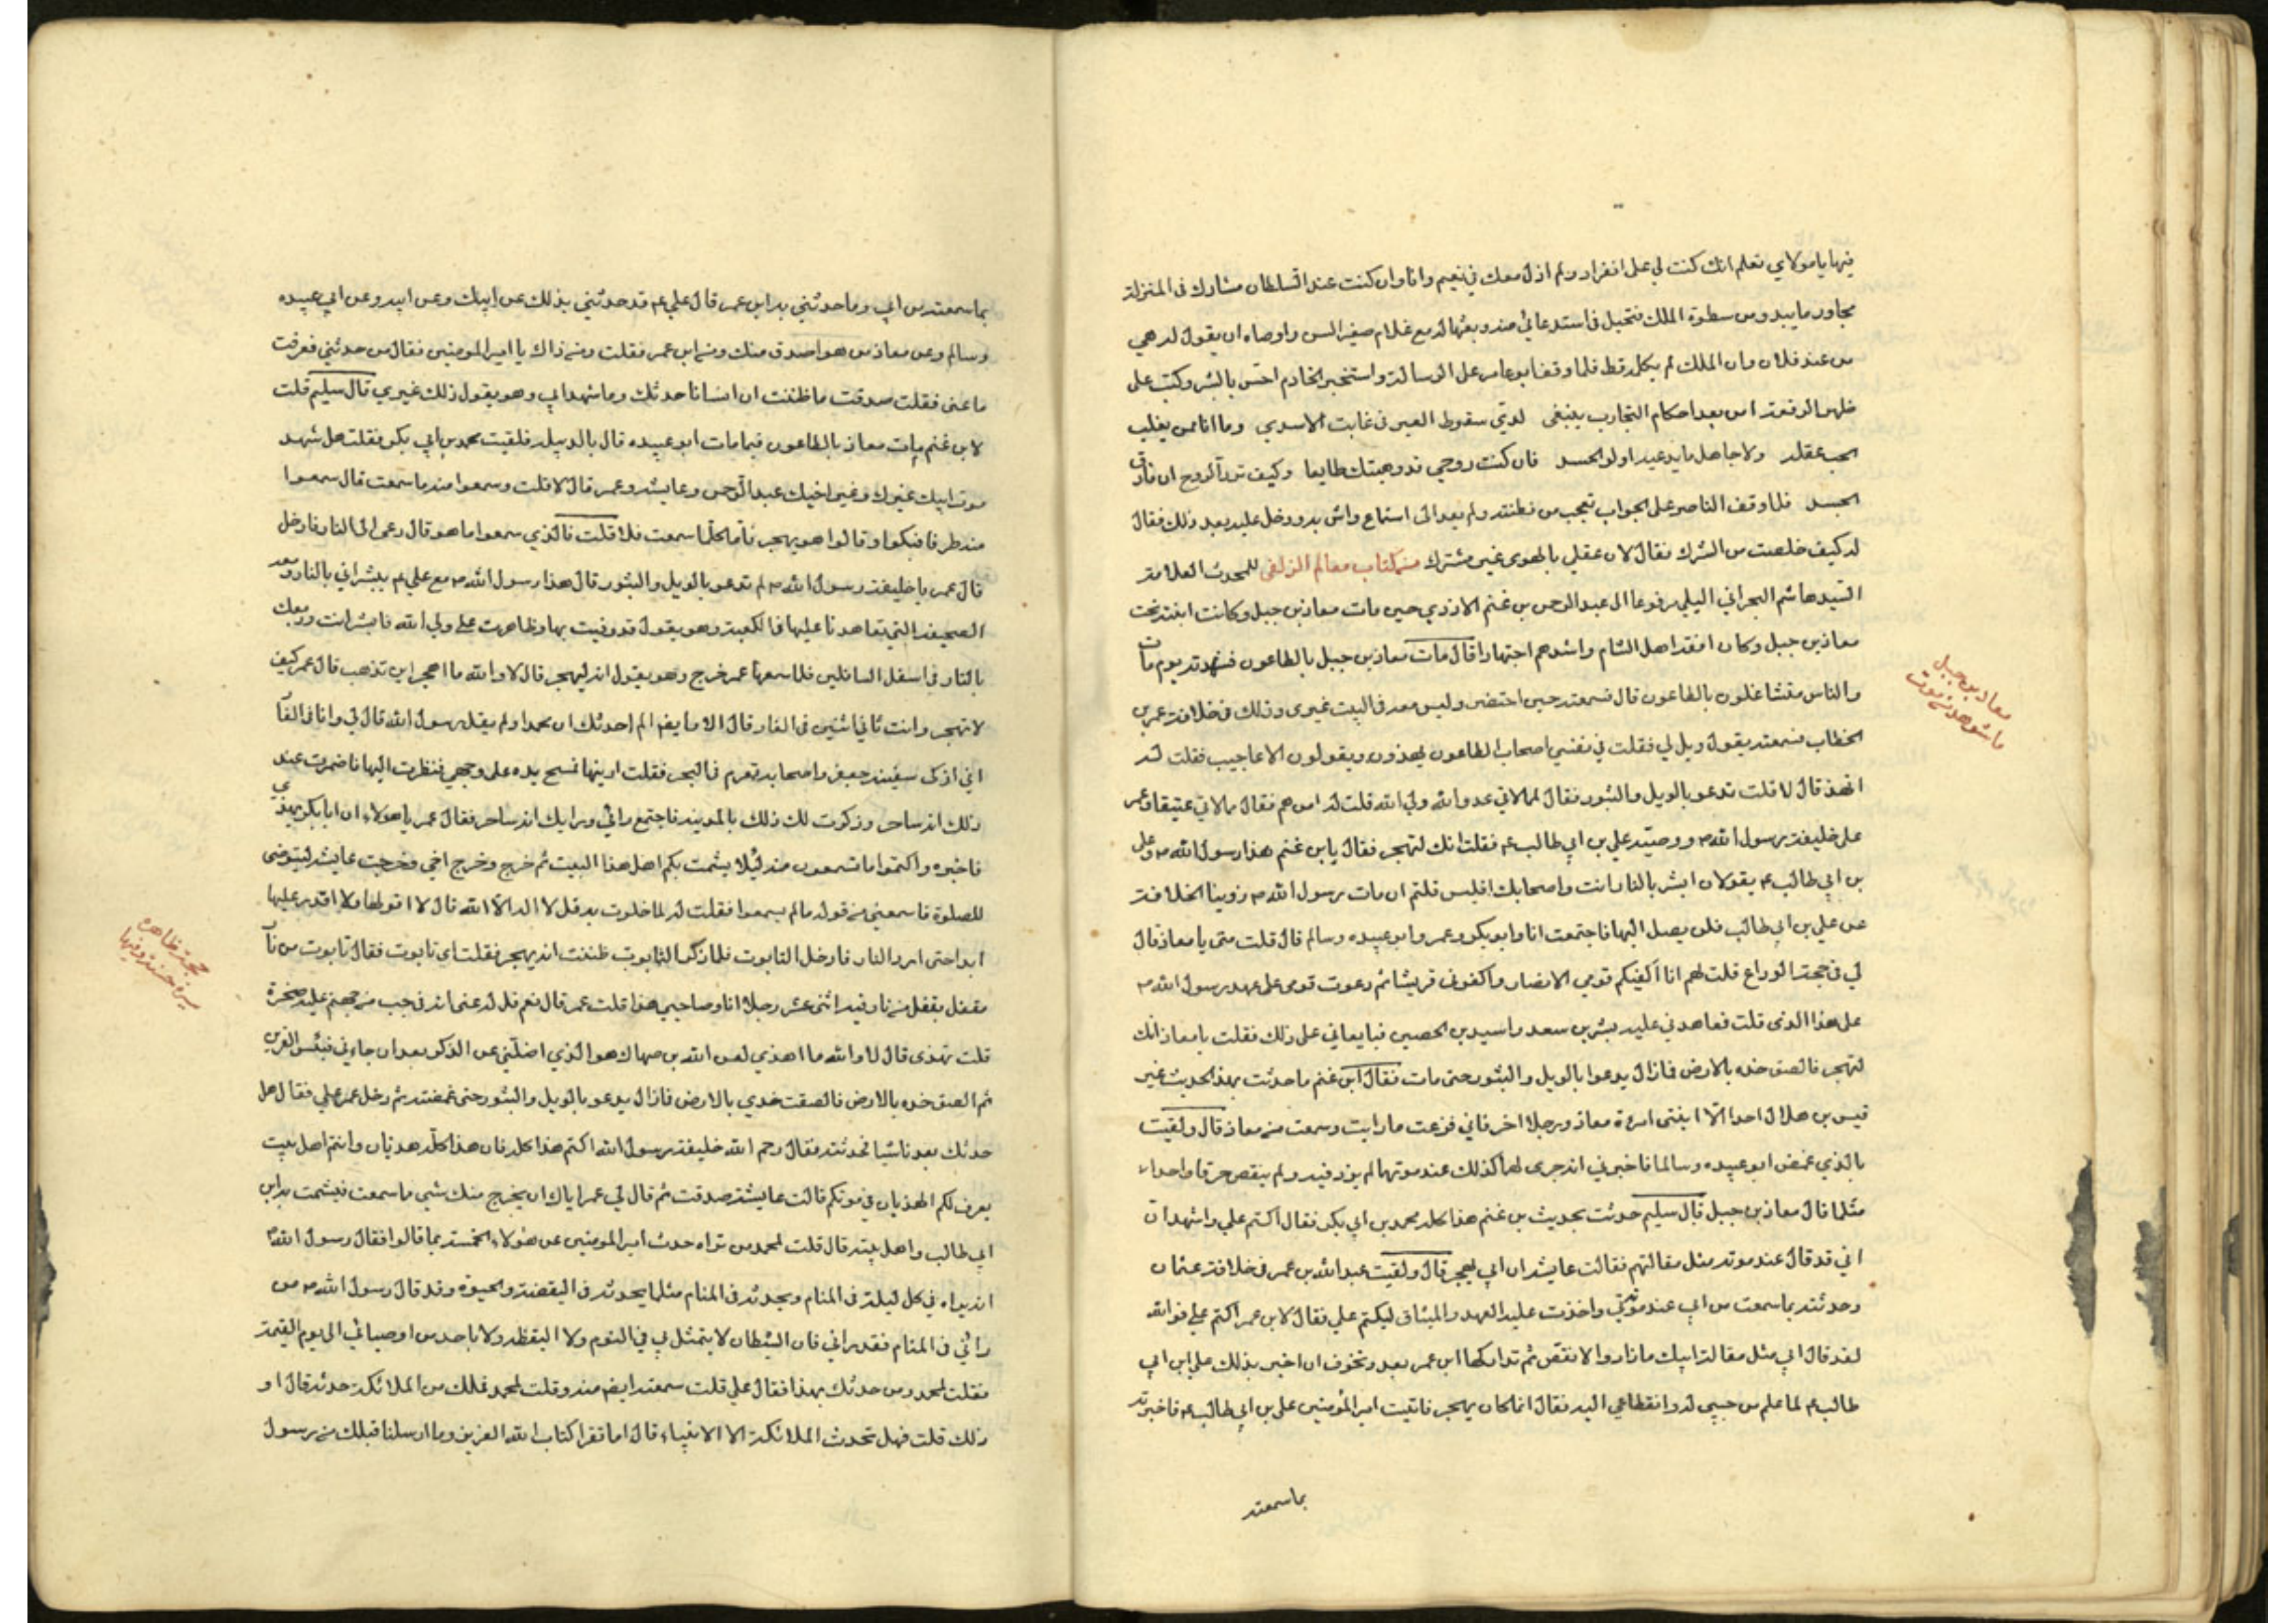 فيها يا مولاي تعلم انك كنت لي على انفراد ولم ازل معك في نعيم وانا وان كنت عند السلطان مشارك في المنزلة
مجاور ما يبدو من سطوة الملك فتحيل في استدعائي منه وبعثها له مع غلام صغير السن واوصاه ان يقول له هي
من عند فلان وان الملك لم يكلمه قط فلما وقف ابو عامر على الرسالة واستخبر الخادم احس بالشر وكتب على
ظهر الرقعة امن بعد احكام التجارب ينبغي لدي سقوط العير في غابة الاسد وما انا ممن يغلب
الحب عقله ولا جاهل ما يدعيه اولو الحسد فان كنت روحي قد وهبتك طايعا وكيف ترد الروح ان فارق
الجسد فلما وقف الناصر على الجواب تعجب من فطنته ولم يعد الى استماع واش به ودخل عليه بعد ذلك فقال
له كيف خلصت من الشرك فقال لان عقلي بالهوى غير مشترك من كتاب معالم الزلفى للمحدث العلامة
السيد هاشم البحراني مرفوعا الى عبد الرحمن بن غنم الازدي حين مات معاذ بن جبل وكانت ابنته تحت
معاذ بن جبل وكان افقه اهل الشام واشدهم اجتهادا قال مات معاذ بن جبل بالطاعون فشهدته يوم مات
والناس متشاغلون بالطاعون قال فسمعته حين احتضر وليس معه في البيت غيري وذلك في خلافة عمر بن
الخطاب فسمعته يقول ويل لي فقلت في نفسي اصحاب الطاعون يهذون ويقولون الاعاجيب فقلت له
اتهذ قال لا قلت تدعو بالويل والثبور فقال لممالاتي عدو الله ولي الله قلت له من هم فقال ممالاتي عتيقا وعمر
على خليفة رسول الله ص ووصيه علي بن ابي طالب ع فقلت انك لتهجر فقال يابن غنم هذا رسول الله ص وعلي
بن ابي طالب ع يقولان ابشر بالنار انت واصحابك افليس قلتم ان مات رسول الله ص زوينا الخلافة
عن علي بن ابي طالب فلن يصل اليها فاجتمعت انا وابو بكر وعمر وابو عبيده وسالم قال قلت متى يا معاذ قال
لي في حجة الوداع قلت لهم انا اكفيكم قومي الانصار واكفوني قريشا ثم دعوت قومي على عهد رسول الله ص
على هذا الذي قلت فعاهدني عليه بشر بن سعد واسيد بن الحصين فبايعاني على ذلك فقلت يا معاذ انك
لتهجر فالصق خده بالارض فمازال يدعوا بالويل والثبور حتى مات فقال ابن غنم ما حدثت بهذا الحديث غير
قيس بن هلال احدا الا ابنتي امرءة معاذ ورجلا اخر فاني فزعت ما رايت وسمعت من معاذ قال ولقيت
بالذي غمض ابو عبيده وسالما فاخبرني انه جرى لهما كذلك عند موتهما لم يزد فيه ولم ينقص حرفا واحدا
مثلما قال معاذ بن جبل قال سليم حدثت بحديث بن غنم هذا كله محمد بن ابي بكر فقال اكتم علي واشهد ان
ابي قد قال عند موته مثل مقالتهم فقالت عايشه ان ابي ليهجر قال ولقيت عبدالله بن عمر في خلافة عثمان
وحدثته بما سمعت من ابي عند موته واخذت عليه العهد والميثاق ليكتم علي فقال لابن عمر اكتم علي فوالله
لقد قال ابي مثل مقالة ابيك ما زاد ولا نقص ثم تداركها ابن عمر بعد وتخوف ان اخبر بذلك علي ابن ابي
طالب ع لما علم من حبي له وانقطاعي اليه فقال انما كان يهجر فاتيت امير المؤمنين علي بن ابي طالب ع فاخبرته
بما سمعته
معاذ بن جبل
ما شوهد من موت
بما سمعته من ابي وما حدثني به ابن عمر قال علي ع قد حدثني بذلك عن ابيك وعن ابيه وعن ابي عبيده
وسالم وعن معاذ من هو اصدق منك ومن ابن عمر فقلت ومن ذاك يا امير المومنين فقال من حدثني فعرفت
ما عنى فقلت صدقت ما ظننت ان انسانا حدثك وما شهد ابي وهو يقول ذلك غيري قال سليم قلت
لابن غنم مات معاذ بالطاعون فبما مات ابو عبيده قال بالدبيله فلقيت محمد بن ابي بكر فقلت هل شهد
موت ابيك غيرك وغير اخيك عبد الرحمن وعايشه وعمر قال لا قلت وسمعوا منه ما سمعت قال سمعوا
منه طرفا فبكوا وقالوا هو يهجر فاما كلما سمعت فلا قلت فالذي سمعوا ما هو قال دعى الى النار فادخل
قال عمر يا خليفة رسول الله ص لم تدعو بالويل والثبور قال هذا رسول الله ص مع علي ع يبشراني بالنار ومعه
الصحيفة التي تعاهدنا عليها في الكعبة وهو يقول قد وفيت بها وظاهرت على ولي الله فابشر انت وصحبك
بالنار في اسفل السافلين فلما سمعها عمر خرج وهو يقول انه ليهجر قال لا والله ما اهجر اين تذهب قال عمر كيف
لا تهجر وانت ثاني اثنين في الغار قال الان ايضا الم احدثك ان محمدا ولم يقل رسول الله قال لي وانا في الغار
اني ارى سفينة جعفر واصحابه تعوم في البحر فقلت ارنيها فمسح يده على وجهي فنظرت اليها فاضمرت عند
ذلك انه ساحر وذكرت لك ذلك بالمدينه فاجتمع رائي ورايك انه ساحر فقال عمر يا هولاء ان ابا بكر يهذي
فاخبره واكتموا ما تسمعون منه ليلا يشمت بكم اهل هذا البيت ثم خرج وخرج اخي وخرجت عايشه ليتوضى
للصلوة فاسمعني من قوله مالم يسمعوا فقلت له لما خلوت به قل لا اله الا الله قال لا اقولها ولا اقدر عليها
ابدا حتى ارد النار فادخل التابوت فلما ذكر التابوت ظننت انه يهجر فقلت اي تابوت فقال تابوت من نار
مقفل بقفل من نار فيه اثنى عشر رجلا انا وصاحبي هذا قلت عمر قال نعم قل له عنى انه في جب من جهنم عليه صخرة
قلت تهذى قال لا والله ما اهذي لعن الله بن صهاك هو الذي اضلني عن الذكر بعد ان جاءني فبئس القرين
ثم الصق خده بالارض فالصقت خدي بالارض فمازال يدعو بالويل والثبور حتى غمضته ثم دخل عمر علي فقال هل
حدثك بعدنا شيا فحدثته فقال رحم الله خليفة رسول الله اكتم هذا كله فان هذا كله هذيان وانتم اهل بيت
يعرف لكم الهذيان في موتكم قالت عايشه صدقت ثم قال لي عمر اياك ان يخرج منك شي ما سمعت فيشمت به ابن
ابي طالب واهل بيته قال قلت لمحمد من تراه حدث امير المومنين عن هولاء الخمسة بما قالوا فقال رسول الله ص
انه يراه في كل ليلة في المنام ويحدثه في المنام مثلما يحدثه في اليقضة والحيوة وقد قال رسول الله ص من
رائي في المنام فقد راني فان الشيطان لا يتمثل بي في النوم ولا اليقظه ولا باحد من اوصيائي الى يوم القيمة
فقلت لمحمد ومن حدثك بهذا فقال علي قلت سمعته ايض منه وقلت لمحمد فملك من الملائكة حدثه قال او
ذلك قلت فهل تحدث الملائكة الا الانبياء قال اما تقرا كتاب الله العزيز وما ارسلنا قبلك من رسول